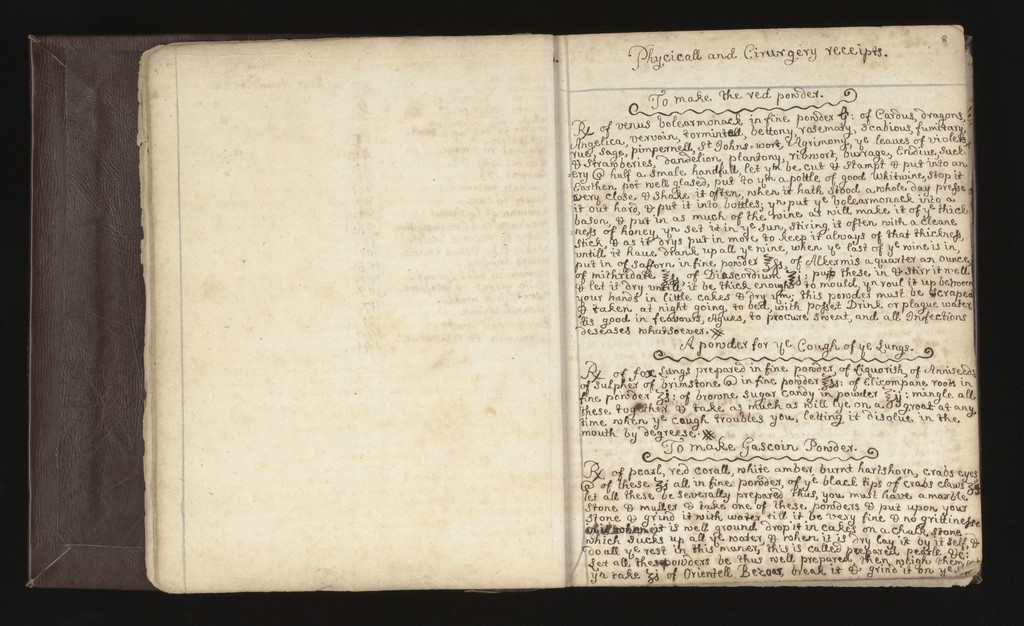 8
Phycicall and Cirurgery receipts.
To make the red powder.
℞ of venus bolearmonack in fine powder : of Cardus, dragons,
Angelica, vervain, tormintell, bettony, rosemary, Scabious, fumitary,
rue, sage, pimpernell, St Johns-wort, Agrimony, ye leaues of violets
& Straberies, dandelion, plantony, ribwort, burrage, Endiue, Suck-
ery @ half a smale handfull, let ym be cut & stampt & put into an
Earthen pot well glased, put to ym a pottle of good Whitwine, stop it
very close & shake it often, when it hath stood a whole day presse
it out hard, & put it into bottles; yn put ye bolearmonack into a
bason, & put in as much of the wine as will make it of ye thick
ness of honey, yn set it in ye sun, stiring it often with a cleane
stick, & as it drys put in more to keep it always of that thickness,
untill it haue drank up all ye wine, when ye last of ye wine is in,
put in of Safforn in fine powder ℥ss, of Alkermis a quarter an ounce,
of mithridate of Diascordium : put these in & stirr it well
& let it dry untill it be thick enough to mould, yn roul it up between
your hands in little cakes & dry ym; this powder must be scraped
& taken at night going to bed, with posset Drink or plague water
tis good in feavours, Agues, to procure sweat, and all Infections
deseases whatsoever.
A powder for ye Cough of ye Lungs.
℞ of fox Lungs prepared in fine powder, of liquorish, of Anniseeds
of sulpher of brimstone @ in fine powder ℥ss: of Elicompane roots in
fine powder ʒs: of browne sugar Candy in powder ℥ij: mingle all
these together & take as much as will lye on a groat at any
time when ye cough troubles you, letting it disolue in the
mouth by degreese.
To make Gascoin Powder.
℞ of pearl, red corall, white amber, burnt hartshorn, crabs eyes
@ of these ʒs all in fine powder, of ye black tips of crabs claws
let all these be severally prepared thus, you must have a marble
stone & muller & take one of these powders & put upon your
stone & grind it with water till it be very fine & no grittinesse
when it is well ground drop it in cakes on a chalk stone
which sucks up all ye water, & when it is dry lay it by it self &
do all ye rest in this maner, this is called prepared pearle &c:
let all these powders be thus well prepared, then weigh them
yn take ʒs of Orientell Bezoar, break it & grind it on ye